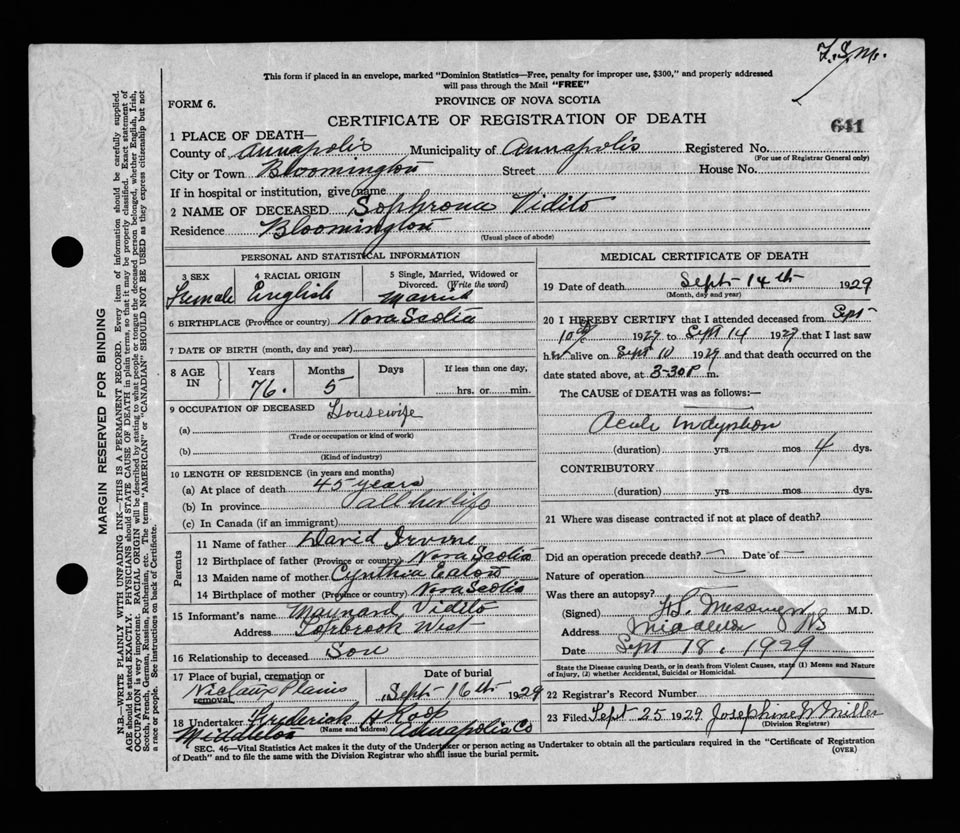 F.S.M.
This form if placed in an envelope, marked "Dominion Statistics—Free, penalty for improper use, $300," and properly addressed
will pass through the Mail "FREE"
FORM 6.
PROVINCE OF NOVA SCOTIA
CERTIFICATE OF REGISTRATION OF DEATH
641
1 PLACE OF DEATH—
County of Annapolis Municipality of Annapolis Registered No.
(For use of Registrar General only)
City or Town Bloomington Street House No.
If in hospital or institution, give name
2 NAME OF DECEASED Sophrona Vidito
Residence Bloomington
(Usual place of abode)
PERSONAL AND STATISTICAL INFORMATION
3 SEX 4 RACIAL ORIGIN 5 Single, Married, Widowed or
Divorced. (Write the word)
Female English Married
6 BIRTHPLACE (Province or country) Nova Scotia
7 DATE OF BIRTH (month, day and year)
8 AGE IN Years Months Days If less than one day,
76. 5 hrs. or min.
9 OCCUPATION OF DECEASED Housewife
(a)
(Trade or occupation or kind of work)
(b)
(Kind of industry)
10 LENGTH OF RESIDENCE (in years and months)
(a) At place of death 45 years
(b) In province all her life
(c) In Canada (if an immigrant)
Parents
11 Name of father David Irvine
12 Birthplace of father (Province or country) Nova Scotia
13 Maiden name of mother Cynthia Eaton
14 Birthplace of mother (Province or country) Nova Scotia
15 Informant's name Maynard Vidito
Address Torbrook West
16 Relationship to deceased Son
17 Place of burial, cremation or
removal Nictaux Plains Sept 16th 1929
18 Undertaker Frederick H Roop
(Name and address)
Middleton Annapolis Co
MEDICAL CERTIFICATE OF DEATH
19 Date of death Sept 14th 1929
(Month, day and year)
20 I HEREBY CERTIFY that I attended deceased from Sept
10th 1929 to Sept 14 1929 that I last saw
her alive on Sept 10 1929 and that death occurred on the
date stated above, at 3-30 P m.
The CAUSE OF DEATH was as follows:—
Acute Indigestion
(duration) yrs mos 4 dys.
CONTRIBUTORY
(duration) yrs mos. dys.
21 Where was disease contracted if not at place of death?
Did an operation precede death? — Date of —
Nature of operation —
Was there an autopsy?
(Signed) Messenger M.D.
Address Middleton NS
Date Sept 18, 1929
State the Disease causing Death, or in death from Violent Causes, state (1) Means and Nature
of Injury, (2) whether Accidental, Suicidal or Homicidal.
22 Registration Record Number
23 Filed Sept 25 1929 Josephine W Miller
(Division Registrar)
SEC. 46—Vital Statistics Act makes it the duty of the Undertaker or person acting as Undertaker to obtain all the particulars required in the "Certificate of Registration
of Death" and to file the same with the Division Registrar who shall issue the burial permit.
(OVER)
MARGIN RESERVED FOR BINDING
N.B.—WRITE PLAINLY WITH UNFADING INK—THIS IS A PERMANENT RECORD. Every item of information should be carefully supplied.
AGE should be stated EXACTLY. PHYSICIANS should STATE CAUSE OF DEATH in plain terms, so that it may be properly classified. Exact statement of
OCCUPATION is very important. RACIAL ORIGIN will be described by stating to what people or tongue the deceased person belonged, whether English, Irish,
Scotch, French, German, Russian, Ruthenian, etc. The terms "AMERICAN" or "CANADIAN" SHOULD NOT BE USED as they express citizenship but not
a race or people. See instructions on back of Certificate.